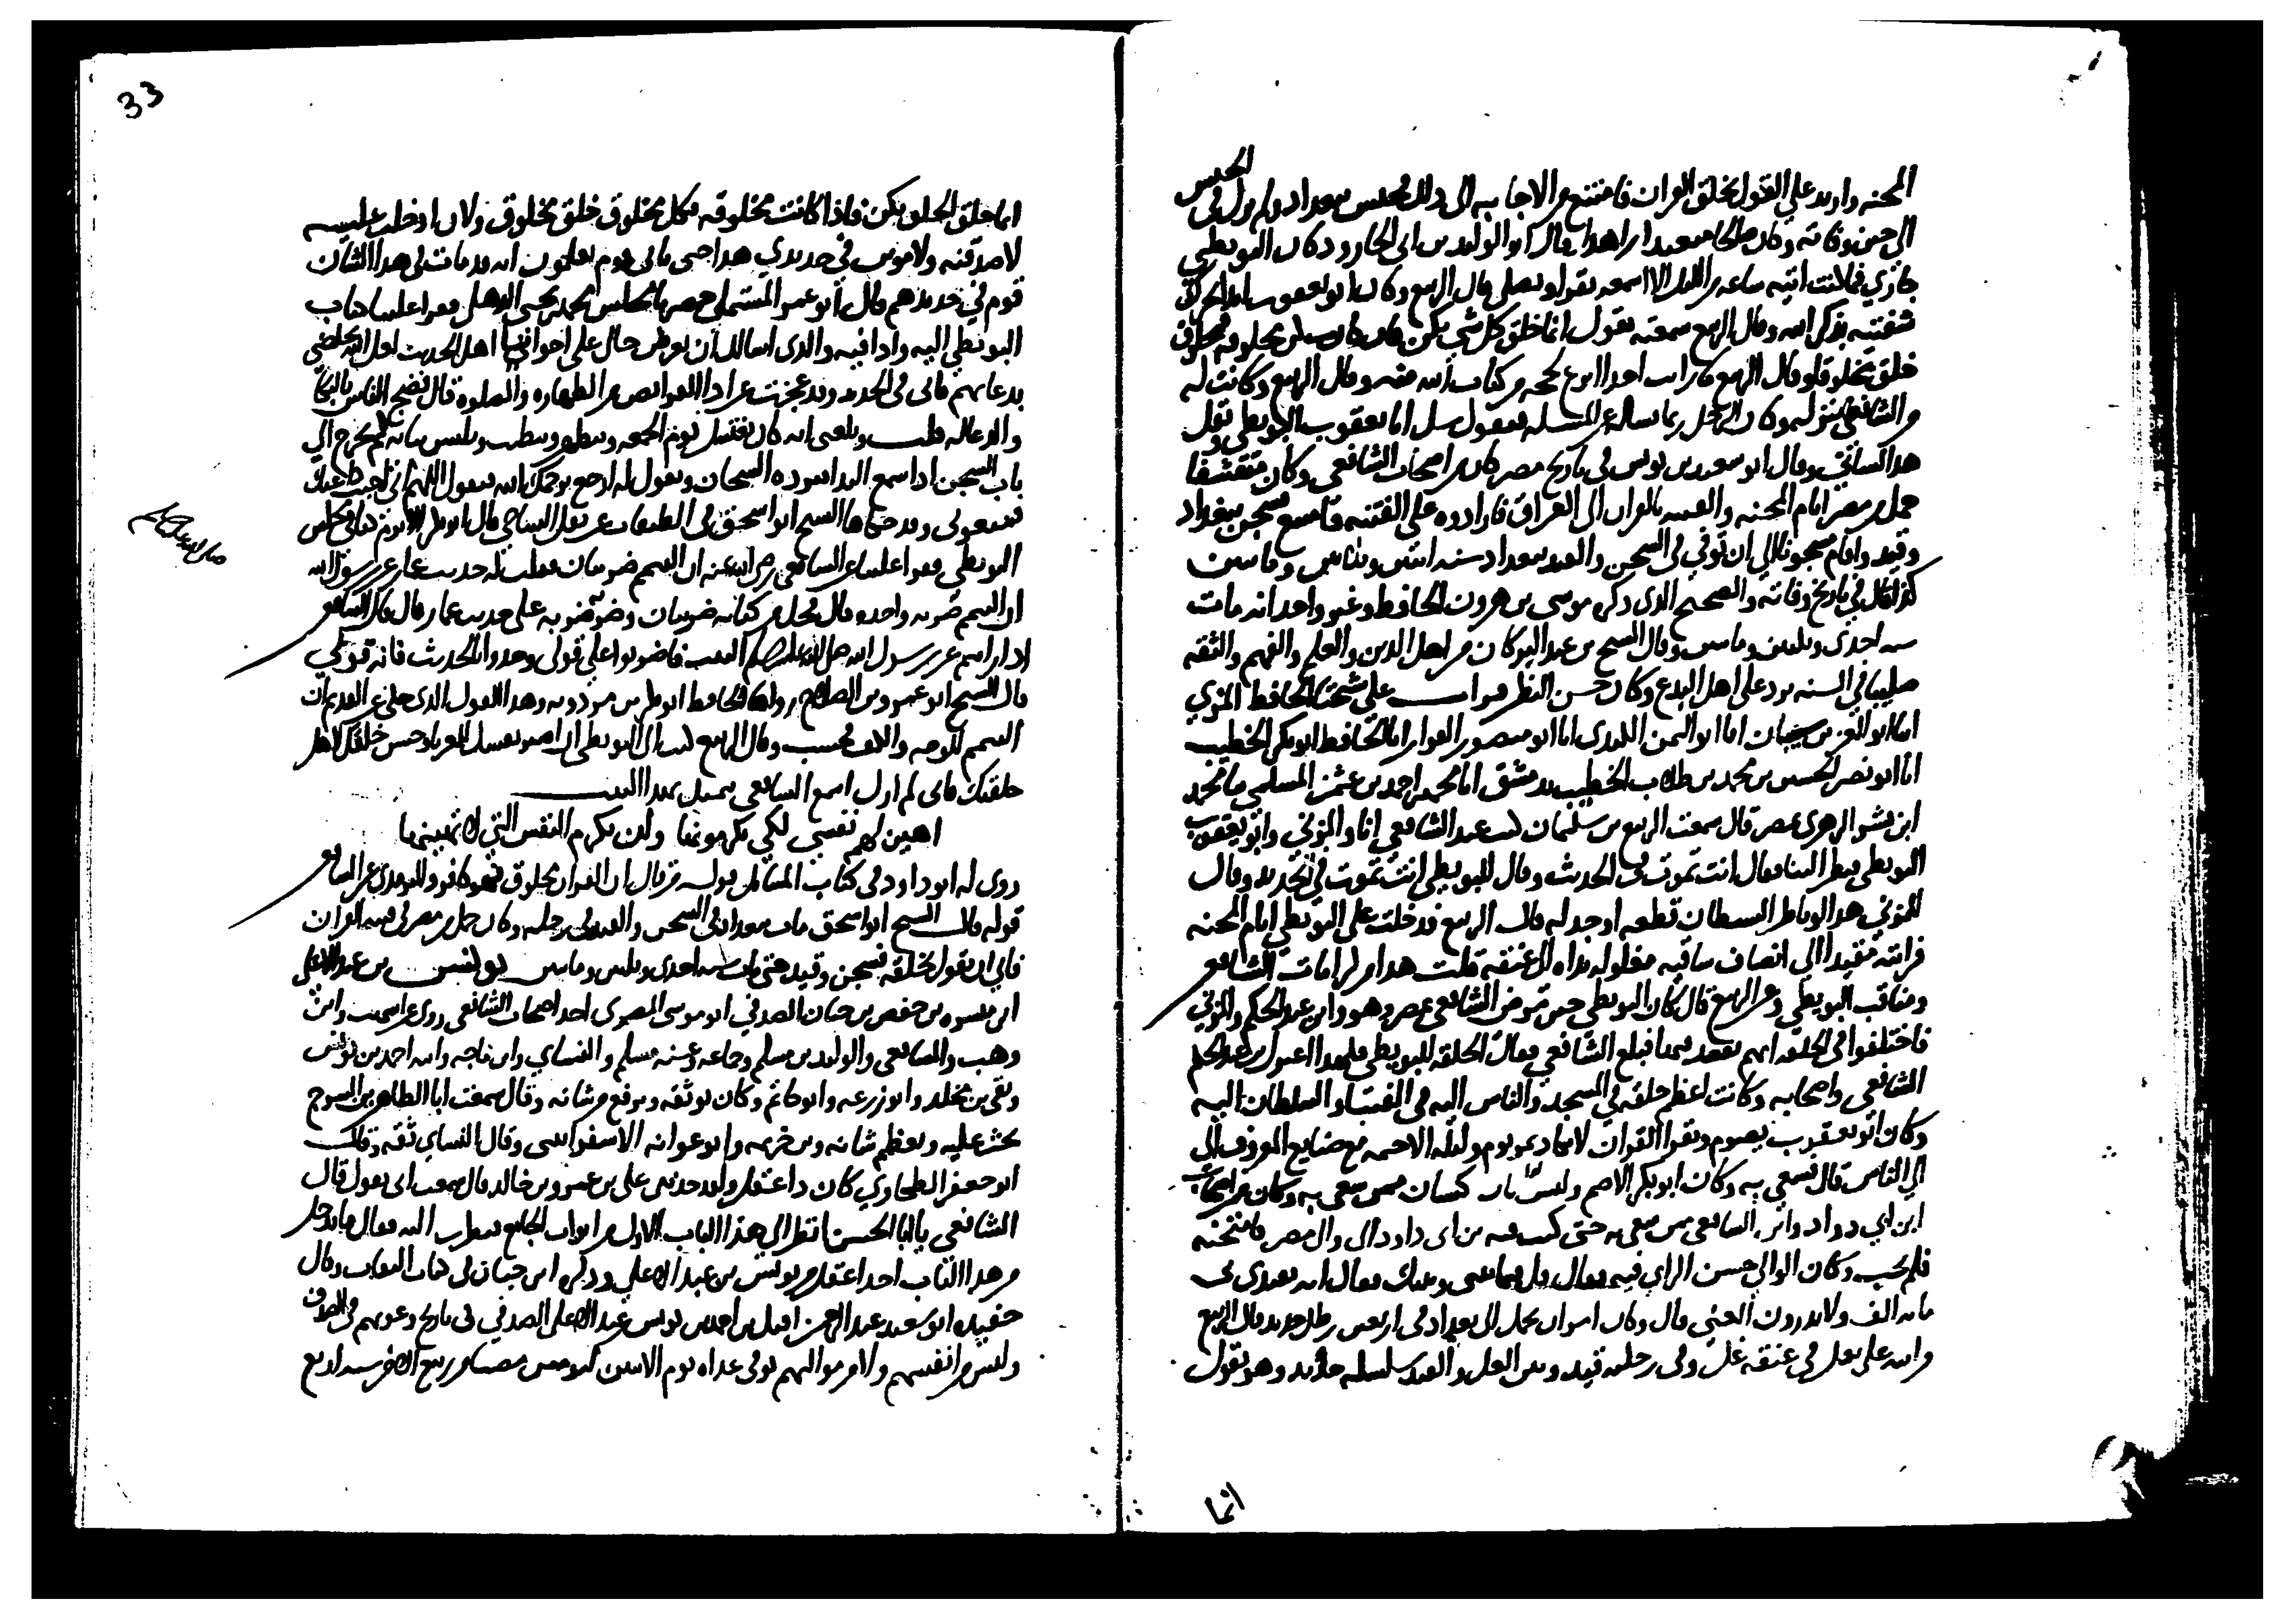 المحنة واريد على القول بخلق القران فامتنع من الاجابة الى ذلك فحبس ببغداد ولم يزل في الحبس
الى حين وفاته وكان صالحا متعبدا زاهدا قال ابو الوليد بن ابي الجارود كان البويطي
جاري فما كنت انتبه ساعة من الليل الا اسمعه يقرا ويصلي قال الربيع وكان ابو يعقوب ابدا يحرك
شفتيه بذكر الله وقال الربيع سمعته يقول انما خلق كل شي بكن فان كانت كن مخلوقة فمخلوق
خلق مخلوقا وقال الربيع ما رايت احدا انزع بحجة من كتاب الله منه وقال الربيع وكانت له
من الشافعي منزلة وكان الرجل ربما يساله عن المسله فيقول سل ابا يعقوب البويطي
هذا لساني وقال ابو سعيد بن يونس في تاريخ مصر كان من اصحاب الشافعي وكان متقشفا
حمل من مصر ايام المحنة والفتنة بالقران الى العراق فارادوه على الفتنة فامتنع فسجن ببغداد
وقيد واقام مسجونا الى ان توفي في السجن والقيد ببغداد سنة اثنتين وثلاثين ومايتين
كذا قال في تاريخ وفاته والصحيح الذي ذكره موسى بن هرون الحافظ وغير واحد انه مات
سنة احدى وثلثين ومايتين وقال الشيخ بن عبد البر كان من اهل الدين والعلم والفهم والثقة
صليبا في السنة يرد على اهل البدع وكان حسن النظر قرات على شيخنا الحافظ المزي
ابنا ابو العز بن شيبان ابنا ابو اليمن الكندي ابنا ابو منصور القزاز ابنا الحافظ ابو بكر الخطيب
ابنا ابو نصر الحسين بن محمد بن طلاب الخطيب بدمشق ابنا محمد بن احمد بن عثمن السلمي ثنا محمد
ابن بشر الزهري بمصر قال سمعت الربيع بن سليمان كنت عند الشافعي انا والمزني وابو يعقوب
البويطي فنظر الينا فقال انت تموت في الحديث وقال للبويطي انت تموت في الحديد وقال
للمزني هذا لو ناظر الشيطان قطعه او جدله قال الربيع فدخلت على البويطي ايام المحنة
فرايته مقيدا الى انصاف ساقيه مغلولة يداه الى عنقه قلت هذا من كرامات الشافعي
ومناقب البويطي وعن الربيع قال كان البويطي حين مرض الشافعي بمصر هو وابن عبد الحكم والمزني
فاختلفوا في الحلقة ايهم يقعد فيها فبلغ الشافعي فقال الحلقة للبويطي فلهذا اعتزل ابن عبد الحكم
الشافعي واصحابه وكانت اعظم حلقة في المسجد والناس اليه في الفتيا والسلطان اليه
وكان ابو يعقوب يصوم ويقرا القران لا يكاد يمر يوم وليلة الا ختمه مع صنايع المعروف الى
الى الناس قال فسعي به وكان ابو بكر الاصم وليس بابن كيسان ممن سعى به وكان من اصحاب
ابن ابي دواد وابن الشافعي ممن سعى به حتى كتب فيه بن ابي داود الى والي مصر فامتحنه
فلم يجب وكان الوالي حسن الراي فيه فقال قل فيما بيني وبينك فقال انه يقتدي بي
ماية الف ولا يدرون المعنى قال وكان امر ان يحمل الى بغداد في اربعين رطل حديد قال الربيع
رايته على بغل في عنقه غل وفي رجليه قيد وبين الغل والقيد سلسلة حديد وهو يقول
انما
33
انما خلق الخلق بكن فاذا كانت مخلوقة فكل مخلوق خلق بمخلوق ولان ادخلت عليه
لاصدقنه ولاموتن في حديدي هذا حتى ياتي قوم يعلمون انه قد مات في هذا الشان
قوم في حديدهم قال ابو عمر المستملي حضرنا مجلس محمد بن يحيى الذهلي فقرا علينا كتاب
البويطي اليه واذا فيه والذي اسالك ان تعرض حالي على اخواننا اهل الحديث لعل الله يخلصني
بدعايهم فاني في الحديد وقد عجزت عن اداء الفرايض من الطهارة والصلوة قال فضج الناس بالبكا
والدعا له قلت وبلغني انه كان يغتسل يوم الجمعة ويتطهر ويتطيب ويلبس ثيابه ثم يخرج الى
باب السجن اذا سمع النداء فيرده السجان ويقول له ارجع يرحمك الله فيقول اللهم اني اجبت داعيك
فمنعوني وقد حكاها الشيخ ابو اسحق في الطبقات عن نقل الساجي قال ابو بكر الاثرم كنا في مجلس
البويطي فقرا علينا عن الشافعي رضي الله عنه ان التيمم ضربتان فقلت له حديث عمار عن رسول الله
ان التيمم ضربة واحدة قال فحك من كتابه ضربتان وصيره ضربة على حديث عمار وقال قال الشافعي
اذا رايتم عن رسول الله صلى الله عليه وسلم الثبت فاضربوا على قولي وخذوا بالحديث فانه قولي
قال الشيخ ابو عمرو بن الصلاح رواها الحافظ ابو بكر بن مردويه وهذا القول الذي حكي عن القديم ان
التيمم للوجه والكف فحسب وقال الربيع كتب الى البويطي ان اصبر نفسك للغرباء وحسن خلقك لاهل
حلقتك فاني لم ازل اسمع الشافعي يتمثل بهذا البيت
اهين لهم نفسي لكي يكرمونها ولن تكرم النفس التي لا تهينها
روى له ابو داود في كتاب المسائل قوله من قال ان القران مخلوق فهو كافر وللترمذي عن الشافعي
قوله قال الشيخ ابو اسحق مات ببغداد في السجن والقيد في رجليه وكان حمل من مصر في فتنة القران
فابى ان يقول بخلقه فسجن وقيد حتى مات سنة احدى وثلثين ومايتين يونس بن عبد الاعلى
ابن ميسره بن حفص بن حيان الصدفي ابو موسى المصري احد اصحاب الشافعي روى عن اشهب وابن
وهب والشافعي والوليد بن مسلم وجماعة وعنه مسلم والنسائي وابن ماجه وابنه احمد بن يونس
وبقي بن مخلد وابو زرعه وابو حاتم وكان يوثقه ويرفع من شانه وقال سمعت ابا الطاهر بن السرح
يحث عليه ويعظم شانه وبن خزيمه وابو عوانه الاسفرايني وقال النساي ثقة وقال
ابو جعفر الطحاوي كان ذا عقل ولقد حدثني علي بن عمرو بن خالد قال سمعت ابي يقول قال
الشافعي يا ابا الحسن انظر الى هذا الباب الاول من ابواب الجامع فنظرت اليه فقال ما يدخل
من هذا الباب احد اعقل من يونس بن عبد الاعلى وذكره ابن حبان في كتاب الثقات وقال
حفيده ابو سعيد عبد الرحمن بن احمد بن يونس بن عبد الاعلى الصدفي في تاريخه دعوتهم في الصدف
وليس من انفسهم ولا من مواليهم توفي غداة يوم الاثنين ليومين مضيا من ربيع الاخر سنة اربع